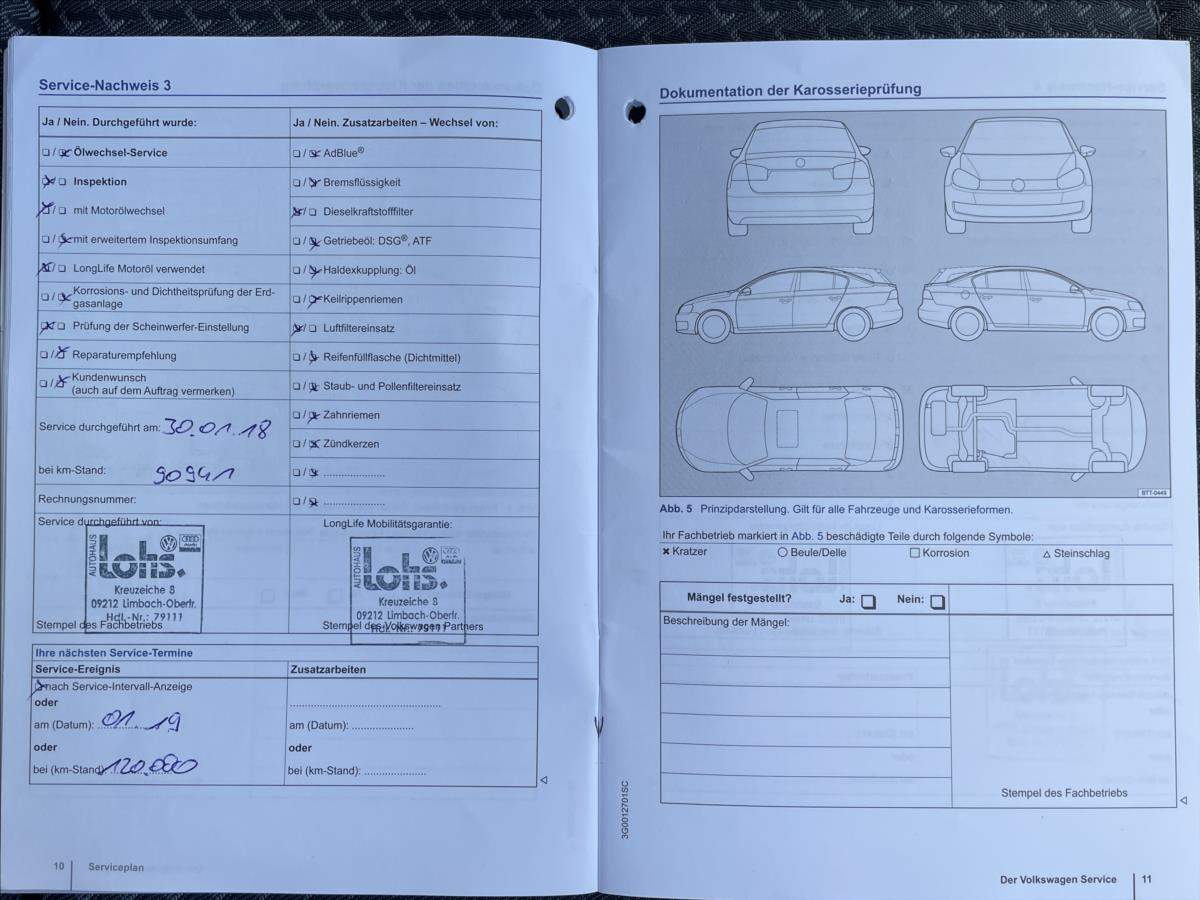 Service-Nachweis 3
Ja / Nein. Durchgeführt wurde:
Ölwechsel-Service
Inspektion
mit Motorölwechsel
mit erweitertem Inspektionsumfang
LongLife Motoröl verwendet
Korrosions- und Dichtheitsprüfung der Erd-
gasanlage
Prüfung der Scheinwerfer-Einstellung
Reparaturempfehlung
Kundenwunsch
(auch auf dem Auftrag vermerken)
Service durchgeführt am: 30.01.18
bei km-Stand: 90941
Rechnungsnummer:
Service durchgeführt von:
AUTOHAUS
Lohs.
Kreuzeiche 8
09212 Limbach-Oberfr.
Hdl.-Nr.: 79111
Stempel des Fachbetriebs
Ja / Nein. Zusatzarbeiten – Wechsel von:
AdBlue®
Bremsflüssigkeit
Dieselkraftstofffilter
Getriebeöl: DSG®, ATF
Haldexkupplung: Öl
Keilrippenriemen
Luftfiltereinsatz
Reifenfüllflasche (Dichtmittel)
Staub- und Pollenfiltereinsatz
Zahnriemen
Zündkerzen
LongLife Mobilitätsgarantie:
AUTOHAUS
Lohs.
Kreuzeiche 8
09212 Limbach-Oberfr.
Hdl.-Nr.: 79111
Stempel des Volkswagen Partners
Ihre nächsten Service-Termine
Service-Ereignis
nach Service-Intervall-Anzeige
oder
am (Datum): 01.19
oder
bei (km-Stand): 120.000
Zusatzarbeiten
am (Datum):
oder
bei (km-Stand):
10
Serviceplan
Dokumentation der Karosserieprüfung
BTT-0449
Abb. 5 Prinzipdarstellung. Gilt für alle Fahrzeuge und Karosserieformen.
Ihr Fachbetrieb markiert in Abb. 5 beschädigte Teile durch folgende Symbole:
Kratzer
Beule/Delle
Korrosion
Steinschlag
Mängel festgestellt? Ja: Nein:
Beschreibung der Mängel:
Stempel des Fachbetriebs
3G0012701SC
Der Volkswagen Service
11